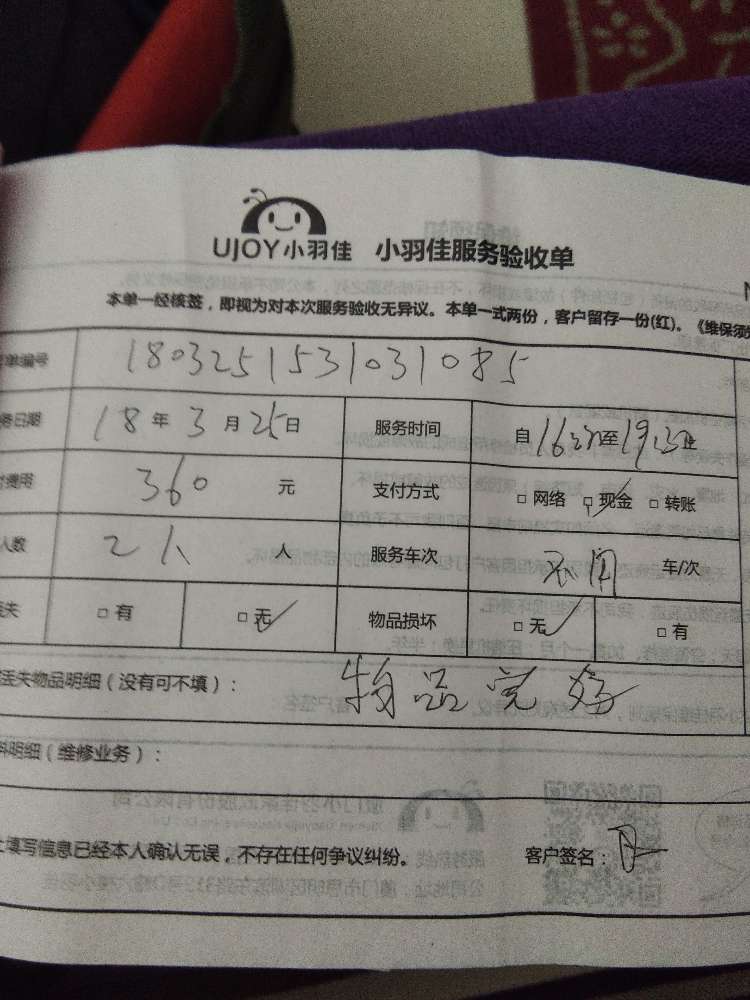 UJOY小羽佳 小羽佳服务验收单
本单一经核签，即视为对本次服务验收无异议。本单一式两份，客户留存一份(红)。《维保须
单编号 1803251531031085
务日期 18年3月25日 服务时间 自 至
费用 360 元 支付方式 □网络 □现金 □转账
人数 2人 人 服务车次 不用 车/次
失 □有 □无 物品损坏 □无 □有
丢失物品明细（没有可不填）： 物品完好
料明细（维修业务）：
上填写信息已经本人确认无误，不存在任何争议纠纷。 客户签名：